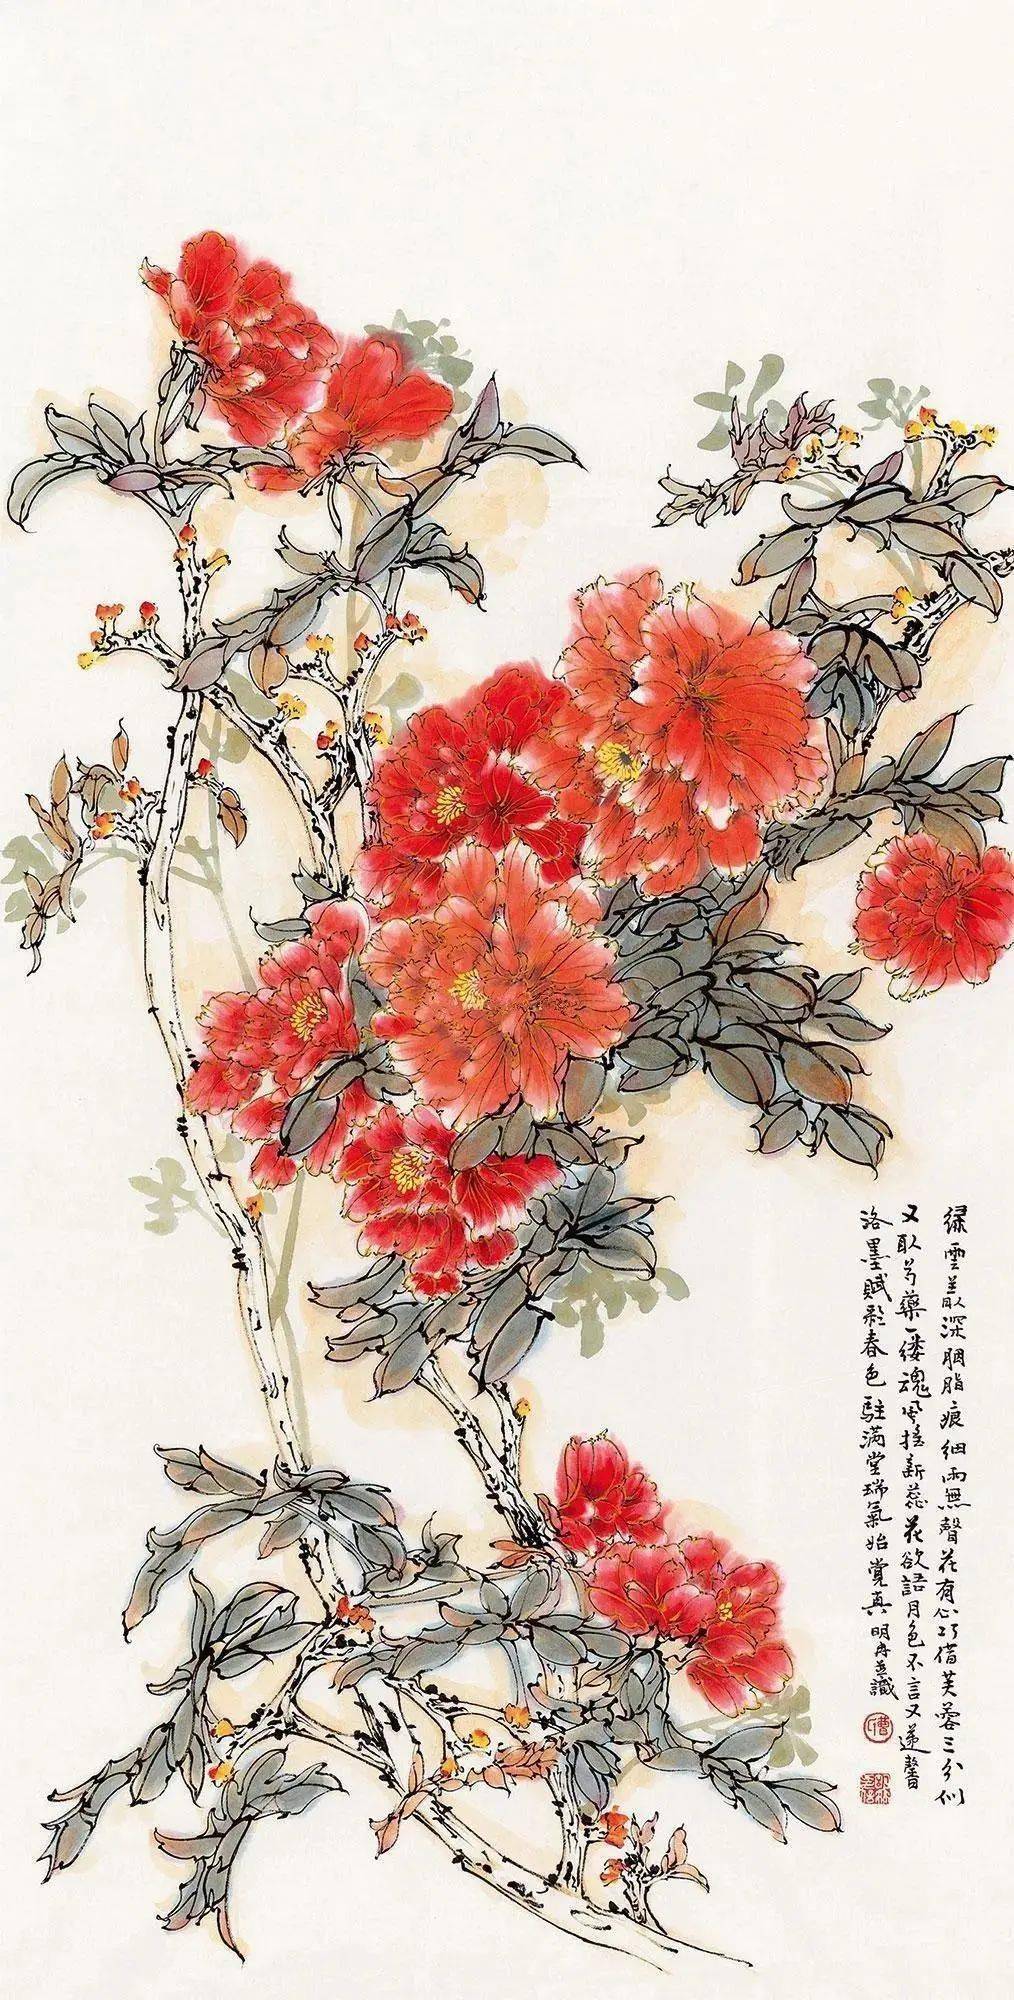 绿雲叢深胭脂痕细雨無聲花有心巧借芙蓉三分似
又取芍藥一缕魂風摇新蕊花欲語月色不言又递馨
洛墨賦彩春色駐满堂瑞氣始覺真明冉並識
曹